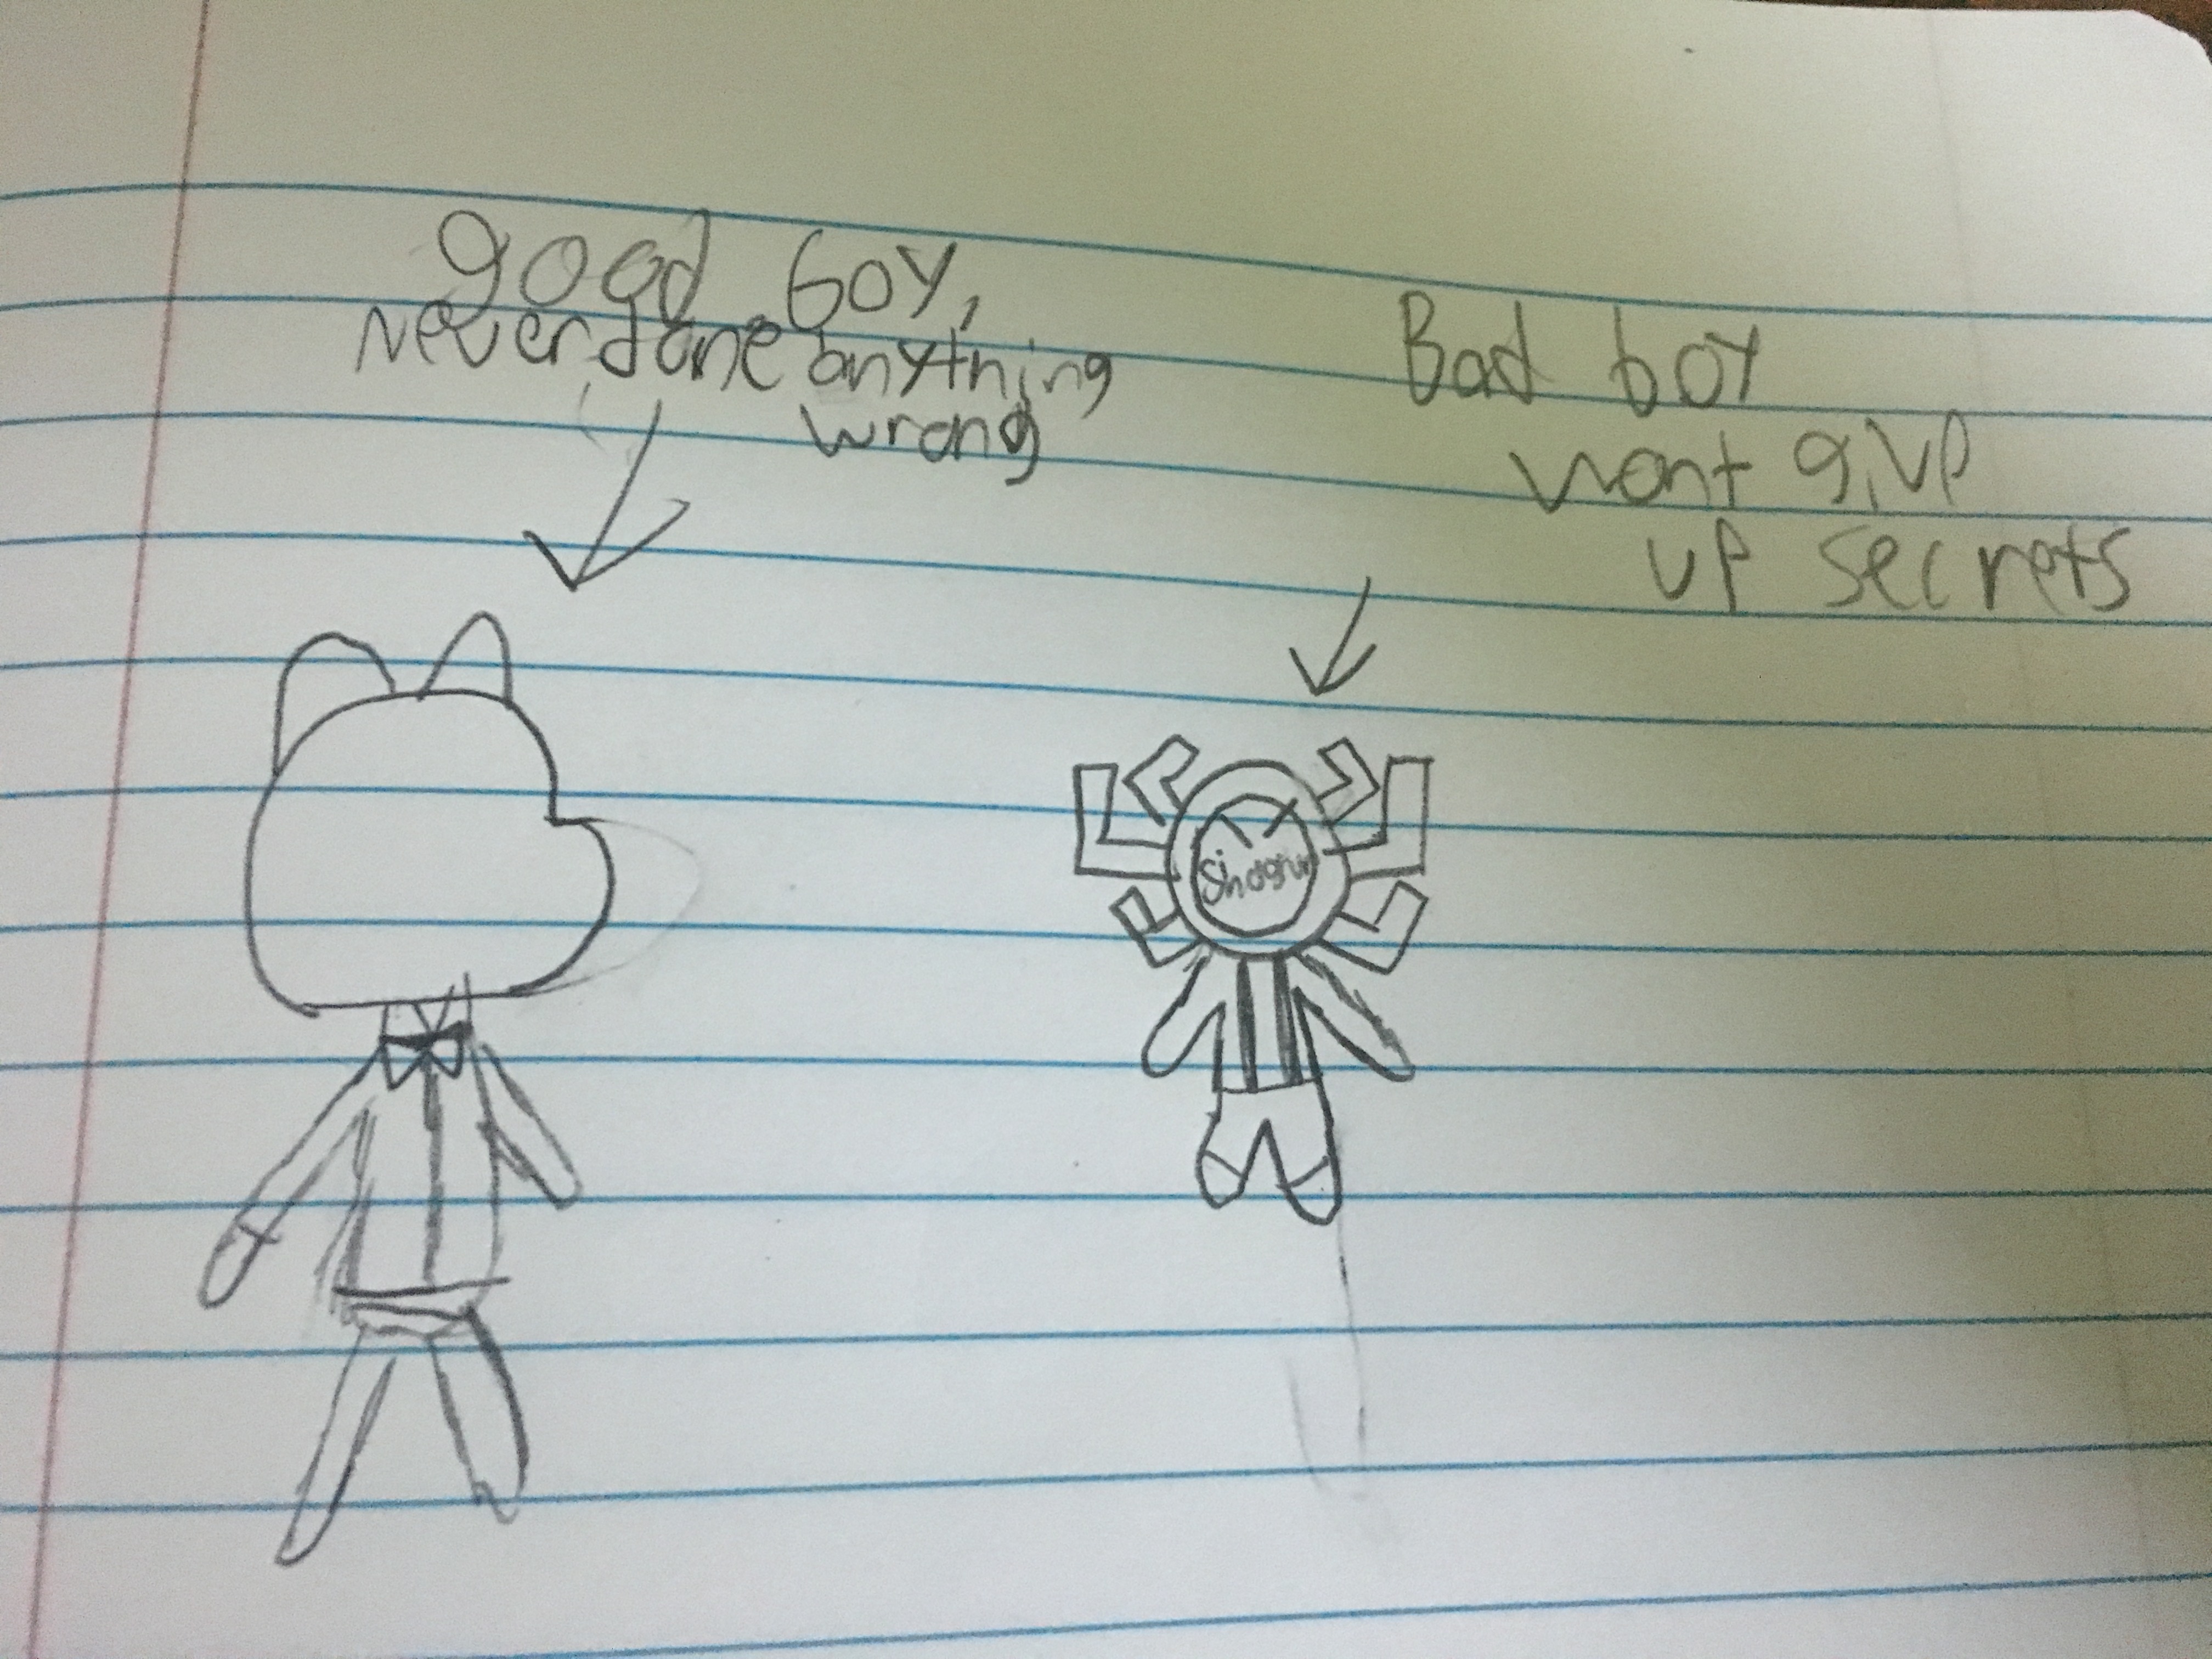 good boy,
Never done anything
wrong
Bad boy
wont give
up secrets